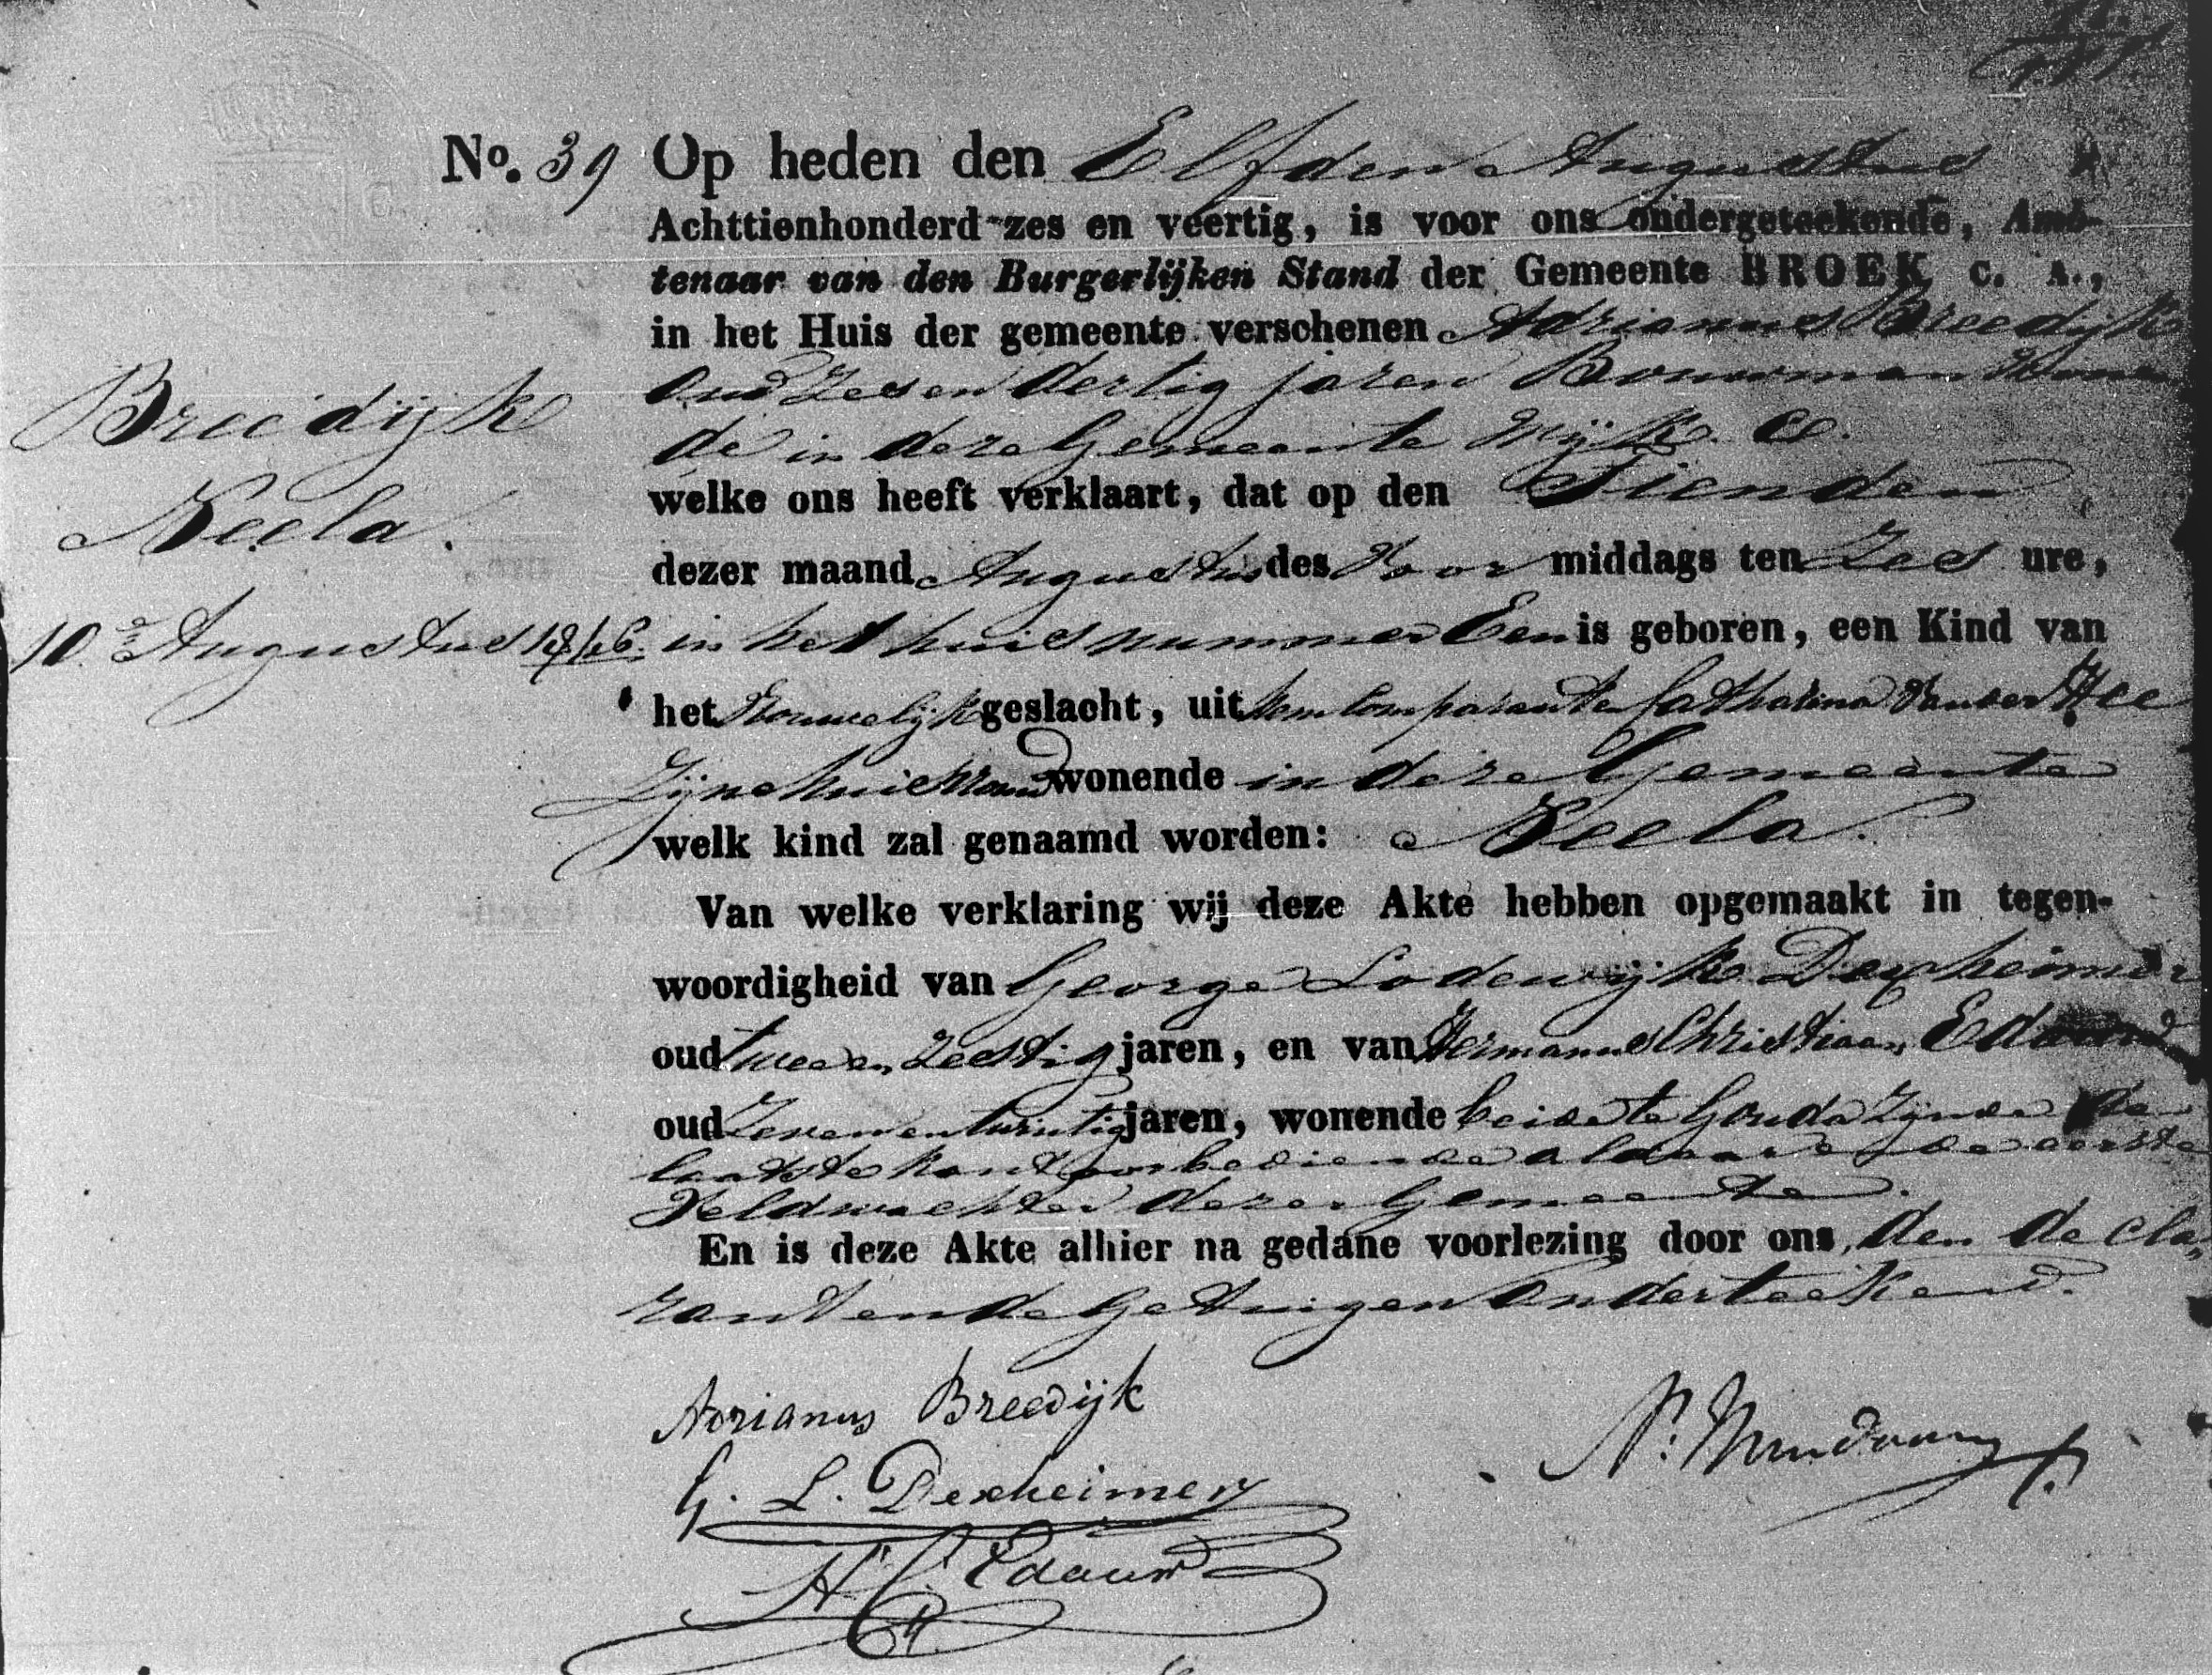 No. 39 Op heden den Elfden Augustus
Achttienhonderd zes en veertig, is voor ons ondergeteekende, Amb-
tenaar van den Burgerlijken Stand der Gemeente BROEK C. A.,
in het Huis der gemeente verschenen Adrianus Breedijk
oud Zes en dertig jaren Bouwman Wonen
de in deze Gemeente Wijk
welke ons heeft verklaart, dat op den Tienden
dezer maand Augustus des Voor middags ten Zes ure,
in het huis nummer Een is geboren, een Kind van
het Vrouwelijk geslacht, uit hem Comparant en Catharina Van der Hee
Zijne huisvrouw wonende in deze Gemeente
welk kind zal genaamd worden: Neela.
Van welke verklaring wij deze Akte hebben opgemaakt in tegen-
woordigheid van George Lodewijk Dexheimer
oud twee en Zestig jaren, en van Hermanus Christiaan Edauw
oud Zeven en twintig jaren, wonende beide te Gouda Zijnde de
laatste kantoorbediende aldaar en de eerste
Veldwachter dezer Gemeente.
En is deze Akte alhier na gedane voorlezing door ons, den decla-
rant en de Getuigen Onderteekend.
Breedijk
Neela.
10 Augustus 1846.
Adrianus Breedijk
G. L. Dexheimer
H C Edauw